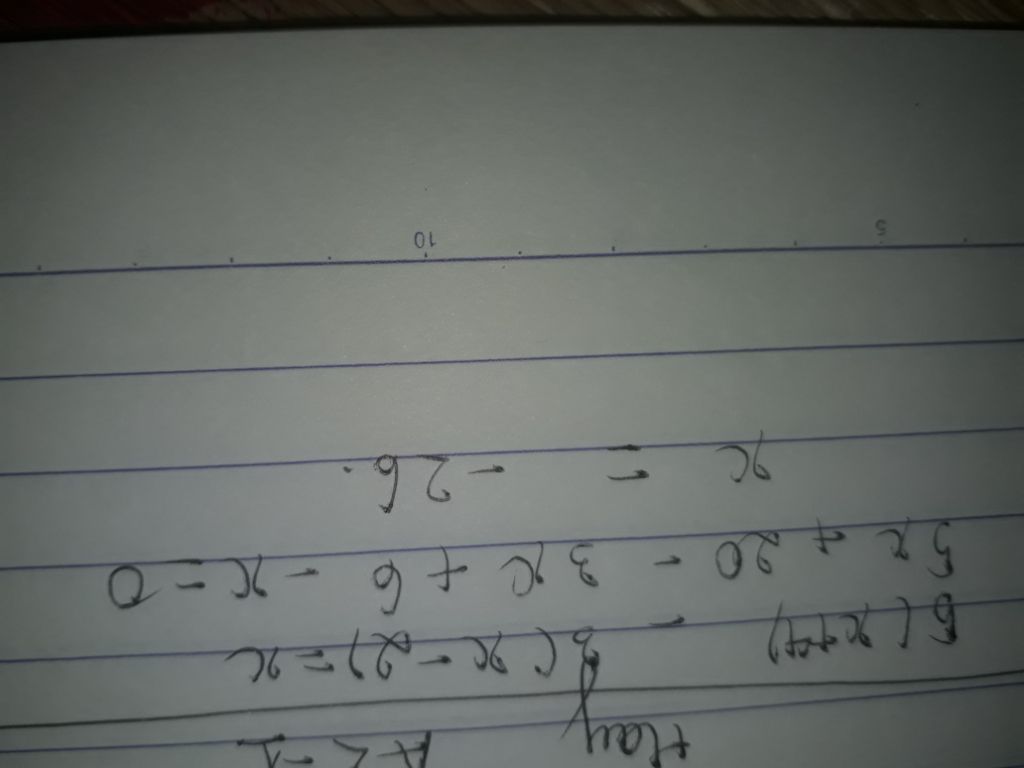 Hay A < -1
5(x+4) - 3(x-2) = x
5x + 20 - 3x + 6 - x = 0
x = - 26.
5 10